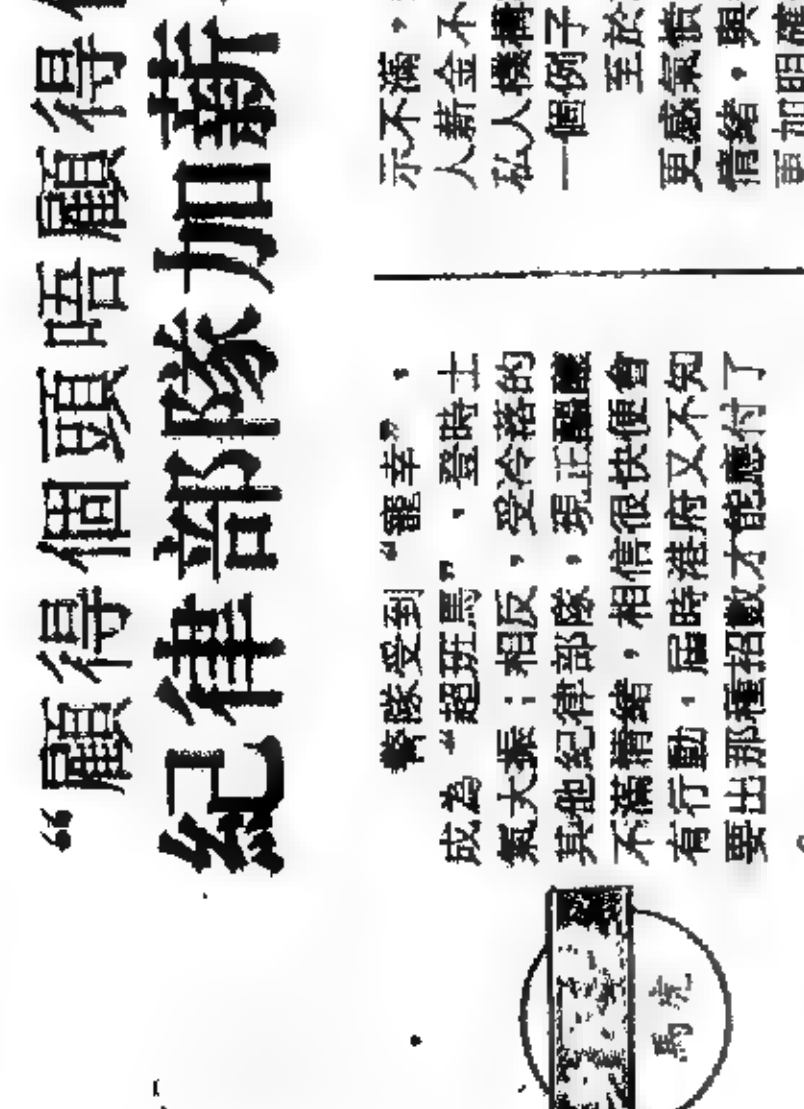 “顧得個頭唔顧得
紀律部隊加薪
警隊受到“寵幸”，
成為“超班馬”，登時士
氣大振；相反，受冷落的
其他紀律部隊，現正醞釀
不滿情緒，相信很快便會
有行動，屆時港府又不知
要出那種招數才能應付了
示不滿，
人薪金不
私人機構
一個例子
至於
更感氣憤
情緒，與
更加明確
馬